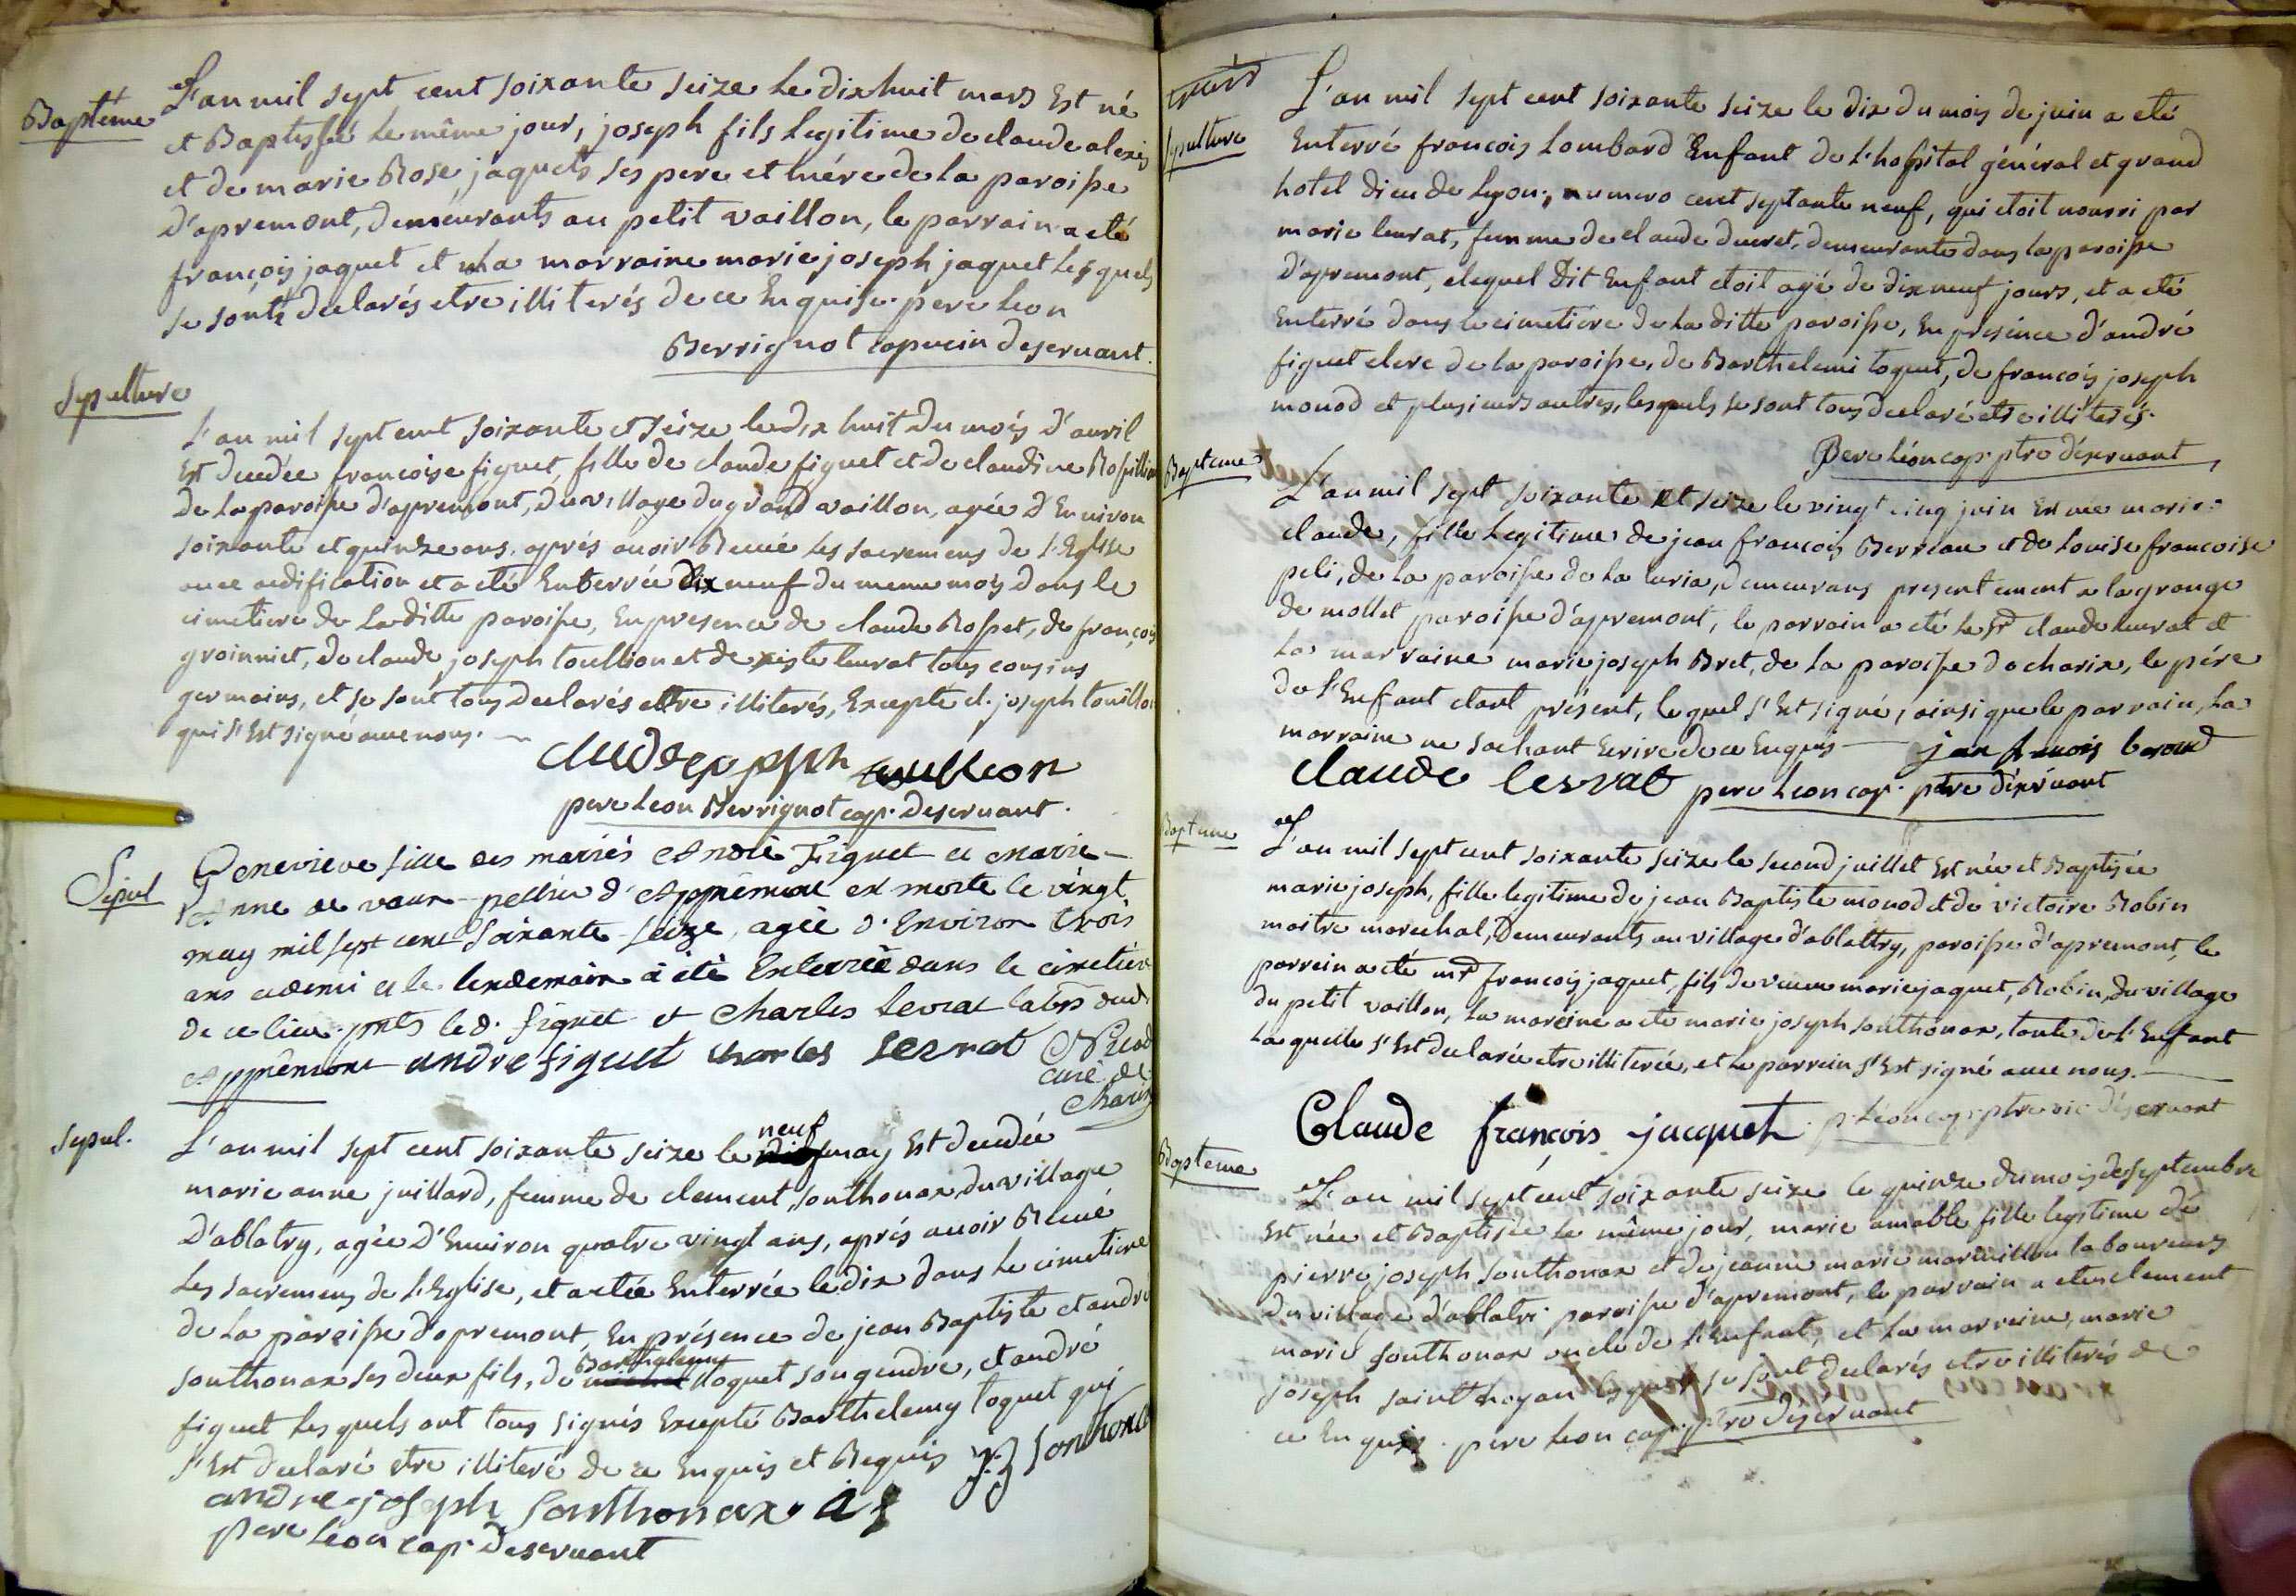 Baptême
L'an mil sept cent soixante seize le dixhuit mars Est né
et Baptissé le même jour, joseph fils legitime de claude alexis
et de marie Rose jaquets ses pere et mére de la paroisse
d'apremont, demeurants au petit vaillon, le parrain a eté
françois jaquet et la marraine marie joseph jaquet lesquels
se sonts declarés etre illiterés de ce Enquise. pere leon
Berrignot capucin deservant.
Sepulture
L'an mil sept cent soixante et séize le dix huit du mois d'avril
Est decedée francoise figuet, fille de claude figuet et de claudine
de la paroisse d'apremont, du village du grand vaillon, agée d'Environ
soixante et quinze ans, aprés avoir Recué les sacremens de l'Eglise
avec aedification et a eté Enterrée dix neuf du meme mois dans le
cimetiere de la ditte paroisse, En presence de claude Rosset, de françois
groinniet, de claude joseph toullion et de xiste leurat tous cousins
germains, et se sont tous declarés etre illiterés, Excepté cl. joseph
qui s'Est signé avec nous.
pere leon Berrignot cap. deservant.
Sepul
Genevieve fille des mariés André Figuet et Marie
Anne de vaux-pellier d'Apprêmont est morte le vingt
may mil sept cent soixante-seize, agée d'Environ trois
ans et demi et le lendemain à été Enterrée dans le cimetière
de ce lieu. le d. figuet et Charles Levrat
Apprêmont andre figuet charles lesrat
curé de
Charix
Sepul.
L'an mil sept cent soixante seize le neuf may Est decedée
marie anne juillard, femme de clement, sonthonax du village
d'ablatry, agée d'Environ quatre vingt ans, aprés avoir Recué
les sacremens de l'Eglise, et a etée Enterrée le dix dans le cimetiere
de la paroisse d'apremont, En présence de jean Baptiste et andré
sonthonax ses deux fils, de Barthelemy toquet son gendre, et andré
figuet les quels ont tous signés Excepté Barthelemy toquet qui
s'Est declaré etre illiteré de ce Enquis et Requis
andre-joseph Sonthonax
pere leon cap. deservant
Sepulture
L'an mil sept cent soixante seize le dix du mois de juin a eté
Enterré francois Lombard Enfant de l'hospital général et grand
hotel dieu de lyon, numero cent septante neuf, qui etoit nourri par
marie leurat, femme de claude ducret, demeurante dans la paroisse
d'apremont, lequel dit Enfant etoit agé de dix neuf jours, et a eté
Enterré dans le cimetiére de la ditte paroisse, En presénce d'andré
figuet clerc de la paroisse, de Barthelemi toquet, de francois joseph
monod et plusieurs autres, lesquels se sont tous declaré etre illiterés.
Pere léon cap. ptre déservant
Bapteme
L'an mil sept soixante et seize le vingt cinq juin Est née marie
claude, fille legitime de jean francois Berreau et de louise francoise
peli, de la paroisse de la luria, demeurans presentement a la grange
de mollet paroisse d'apremont, le parrain a eté le Sr claude leurat et
la marraine marie joseph Bret, de la paroisse de charix, le pére
de l'Enfant etant présent, lequel s'Est signé, ainsi que le parrain, la
marraine ne sachant Ecrire de ce Enquis
claude lesrat pere leon cap. ptre déservant
Bapteme
L'an mil sept cent soixante seize le second juillet Est née et Baptisée
marie joseph, fille legitime de jean Baptiste monod et de victoire Robin
maitre marechal, demeurants au village d'ablattry, paroisse d'apremont, le
parrein a eté mr francois jaquet, fils de veuve marie jaquet, Robin, du village
du petit vaillon, la mareine a eté marie joseph sonthonax, tante de l'Enfant
laquelle s'Est declarée etre illiterée, et le parrein s'Est signé avec nous.
Claude françois jacquet p. léon cap. ptre vic déservant
Bapteme
L'an mil sept cent soixante seize le quinze du mois de septembre
Est née et Baptisée le même jour, marie amable fille legitime de
pierre joseph sonthonax et de jeanne marie laboureurs
du village d'ablatri paroisse d'apremont, le parrain a eté clement
marie sonthonax oncle de l'Enfant, et la marreine, marie
joseph lesquels se sont declarés etre illiterés de
ce Enquis. pere leon cap. ptre déservant